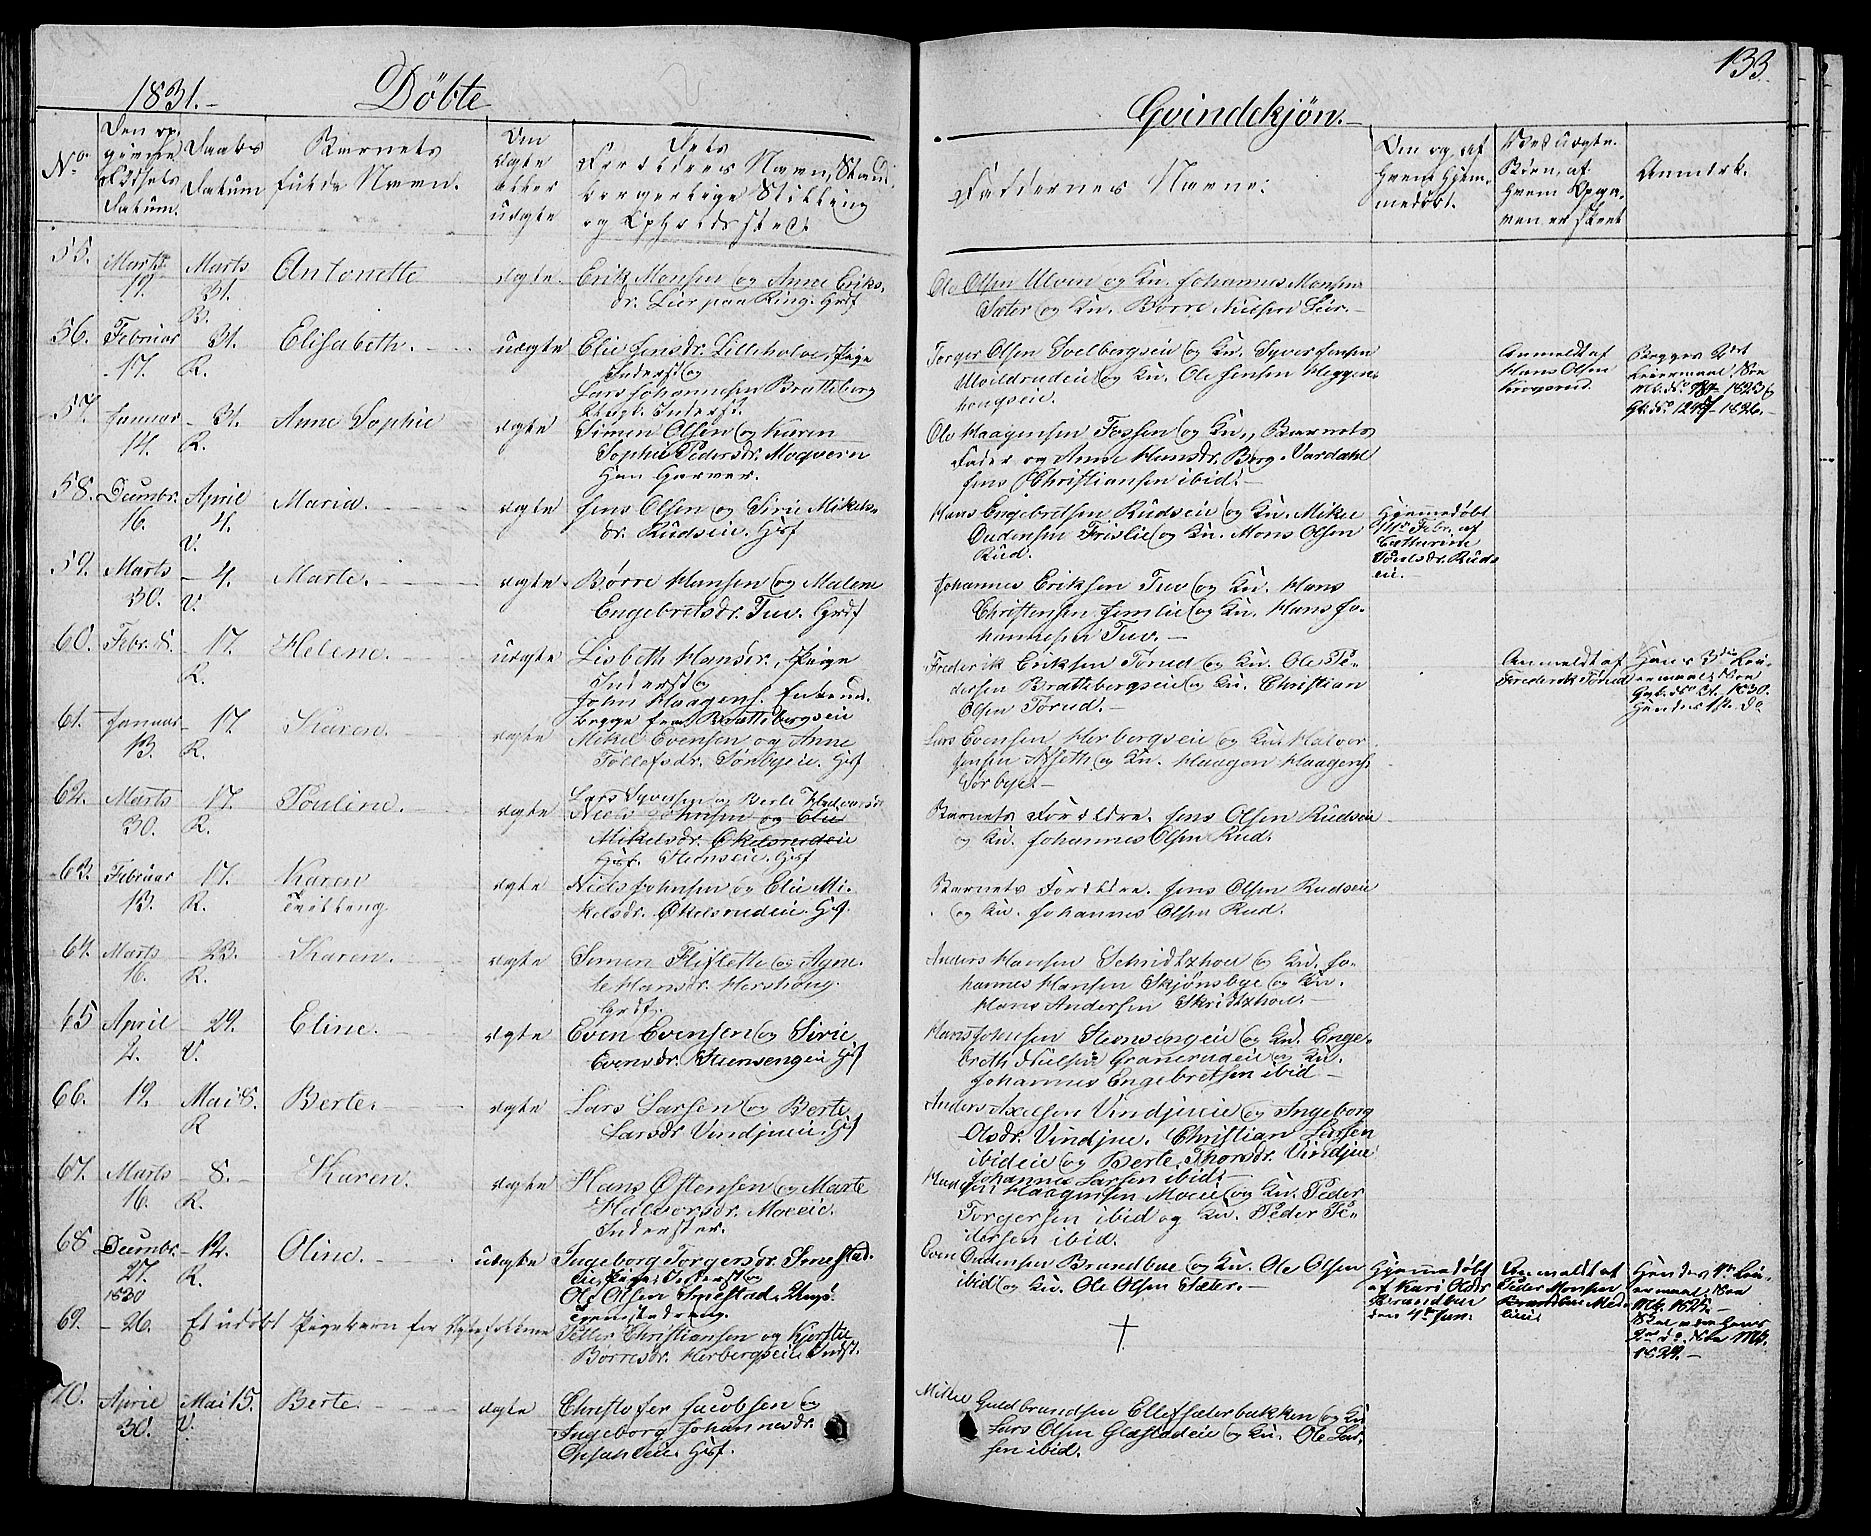 1831.
Döbte
Qvindekjön.
133.
No
Den op-
givne
Födsels
Datum.
Daabs
Datum
Barnets
fulde Navn.
Om
ægte
eller
uægte
Dets
Forældres Navn, Stand,
borgerlige Stilling
og Opholdssted.
Faddernes Navne.
Om og af
hvem hjem-
medöbt.
Ved uægte
Börn, af
hvem Opga-
ven er skeet
Anmærk.
55.
Marts
17.
Marts
31.
R.
Antonette
ægte.
Erik Monsen og Anne Eriks-
dr. Lier paa King. Grdf
Ole Olsen Ulven og Ku. Johannes Monsen
Sæter og Ku. Börre Nielsen Lier.
56.
Februar
17.
31.
R.
Elisabeth.
uægte
Elie Jensdr. Lilleholen, Pige
Inderst og
Lars Johannesen Bratteberg
Ungk. Inderst.
Torger Olsen Solbergseie og Ku. Syver Jensen
Ulvildrudeie og Ku. Ole Jensen Heggen-
hougseie.
Anmeldt af
Hans Olsen
Krogsrud.
Begges 2det
Leiermaal, See
57.
Januar
14.
31.
R.
Anne Sophie
ægte
Simen Olsen og Karen
Sophie Pedersdr. Mogvern
Han Garver.
Ole Haagensen Fossen og Ku., Barnets
Fader og Anne Hansdr. Berg. Vardahl
Jens Christiansen ibid.
58.
Decmbr.
16.
April
4.
V.
Maria.
ægte
Jens Olsen og Sirie Mikels-
dr. Rudseie. Hsf
Hans Engebretsen Rudseie og Ku. Mikel
Audensen Frislie og Ku. Mons Olsen
Rud.
Hjemmedöbt
14de Febr. af
Cathrine
Poulsdr. Ruds-
eie.
59.
Marts
30.
4.
V.
Marte.
ægte
Börre Hansen og Malene
Engebretsdr. Tuv. Grdf
Johannes Eriksen Tuv og Ku. Hans
Christensen Jemlie og Ku. Hans Jo-
hannesen Tuv.
60.
Febr. 8.
17.
R.
Helene.
uægte
Lisbeth Hansdr., Pige
Inderst og
John Haagens. Enkemd.
begge fra Brattebergseie
Frederik Eriksen Torud og Ku. Ole Pe-
dersen Brattebergseie og Ku. Christian
Olsen Torud.
Anmeldt af
Frederik Torud
Hans 3die Lei-
ermaal, See
Gb. d. 31. 1830.
Hendes 1ste do
61.
Januar
13.
17.
R.
Karen.
ægte
Mikel Evensen og Anne
Tollefsdr. Sörbyeie. Hsf
Lars Evensen Herbergseie og Ku. Halvor
Jensen Aseth og Ku. Haagen Haagens.
Sörbye.
62.
Marts
30.
17.
R.
Pouline.
ægte
Lars Syversen og Berte Halvorsdr
Niels Johnsen og Elie
Mikelsdr. Økelsrudeie
Hsf. Steenseie. Hsf
Barnets Forældre. Jens Olsen Rudseie
og Ku. Johannes Olsen Rud.
63.
Februar
13.
17.
R.
Karen
Tvilling
ægte
Niels Johnsen og Elie Mi-
kelsdr. Økelsrudeie. Hsf.
Barnets Forældre. Jens Olsen Rudseie
og Ku. Johannes Olsen Rud.
64.
Marts
16.
23.
R.
Karen.
ægte
Simen Flisleth og Agne-
te Hansdr. Hershoug.
Grdf.
Anders Hansen Schridtshoel og Ku. Jo-
hannes Hansen Skjönsbye og Ku.
Hans Andersen Skridtshoel.
65
April
2.
29.
V.
Eline.
ægte
Even Evensen og Sirie
Evensdr. Steensengeie. Hsf
Hans Johnsen Steensengeie og Ku. Enge-
breth Nielsen Granerudeie og Ku.
Johannes Engebretsen ibid
66.
19.
Mai 8.
R
Berte.
ægte
Lars Larsen og Berte
Larsdr Vindjueie. Hsf
Anders Axelsen Vindjueie og Ingeborg
Olsdr. Vindjue. Christian Larsen
ibideie og Berte Thorsdr. Vindjue
Johannes Larsen ibid.
67.
Marts
16.
8.
R.
Karen.
ægte
Hans Östensen og Marte
Halvorsdr. Moeeie.
Inderster.
Haagensen Moeeie og Ku. Peder
Torgersen ibid og Ku. Peder Pe-
dersen ibid.
68
Decmbr.
27.
1830
12.
R.
Oline.
uægte
Ingeborg Torgersdr. Smestad-
eie, Pige, Inderst og
Ole Olsen Smestad, Ungk.
Tjenestedreng.
Even Audensen Brandbue og Ku. Ole Olsen
ibid og Ku. Ole Olsen Sæter.
Hjemmedöbt
af Kari Olsdr
Brandbue
den 4de Jan.
Anmeldt af
Peder Monsen
Hendes 1ste Lei-
ermaal, See
Mb. 1825.
Skal være Hans
2det do. See Mb.
1829.
69.
26.
Et udöbt Pigebarn for Ægtefolkene
Peder Christiansen og Kjerstie
Börresdr. Herbergseie Indst.
†
70.
April
30.
Mai 15.
V.
Berte.
ægte
Christofer Jacobsen og
Ingeborg Johannesdr.
Opsahleie. Hsf.
Mikkel Guldbrandsen Ellefsæterbakken og Ku
Lars Olsen Glæstadeie og Ku. Ole Lar-
sen ibid.